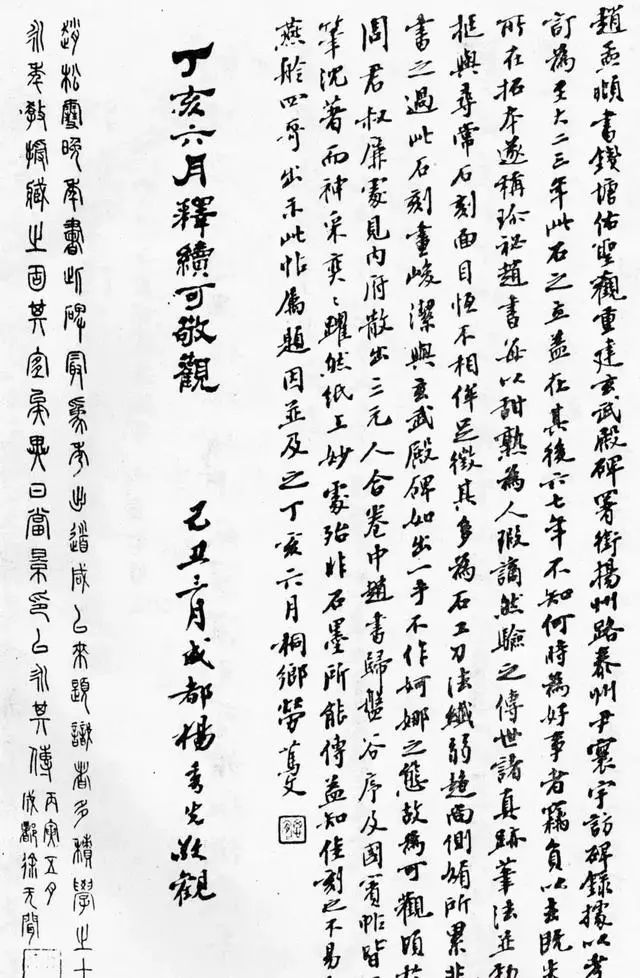 趙孟頫書錢塘佑聖觀重建玄武殿碑署銜揚州路泰州尹寰宇訪碑錄據以考
訂為至大二三年此石之立蓋在其後六七年不知何時為好事者竊負以去既失
所在拓本遂稱珍祕趙書每以甜熟為人瑕謫然驗之傳世諸真跡筆法並勁
挺與尋常石刻面目恒不相侔足徵其多為石工刀法纖弱趨向側媚所累非
書之過此石刻畫峻潔與玄武殿碑如出一手不作婀娜之態故為可觀頃於
周君叔廉處見內府散出三元人合卷中趙書歸盤谷序及國賓帖皆
筆沈著而神采奕奕躍然紙上妙處殆非石墨所能傳益知佳刻之不易
燕舲四哥出示此帖屬題因並及之丁亥六月桐鄉勞篤文
丁亥六月釋續可敬觀
己丑三月成都楊秀先敬觀
趙松雪晚年書此碑最為秀道咸以來題識者多積學之士
永年教授藏之固其宜矣異日當景印以永其傳
丙寅五月
成都徐无聞